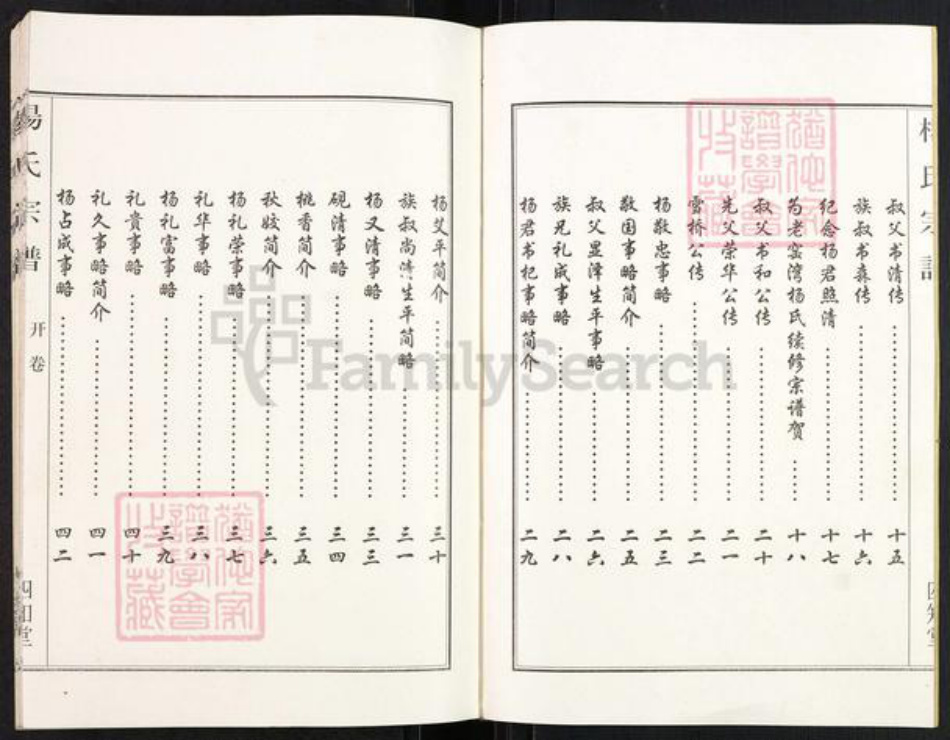 杨氏宗谱
四知堂
叔父书清传……十五
族叔书森传……十六
纪念杨君照清……十七
为老窑湾杨氏续修宗谱贺……十八
叔父书和公传……二十
先父荣华公传……二一
雪桥公传……二二
杨敬忠事略……二三
敬国事略简介……二五
叔父显泽生平事略……二六
族兄礼成事略……二八
杨君书杞事略简介……二九
杨艾平简介……三十
族叔尚清生平简略……三一
杨又清事略……三三
砚清事略……三四
桃香简介……三五
秋姣简介……三六
杨礼荣事略……三七
礼华事略……三八
杨礼富事略……三九
礼贵事略……四十
礼久事略简介……四一
杨占成事略……四二
杨氏宗谱
开卷
四知堂
猶他家譜學會收藏
猶他家譜學會收藏
FamilySearch